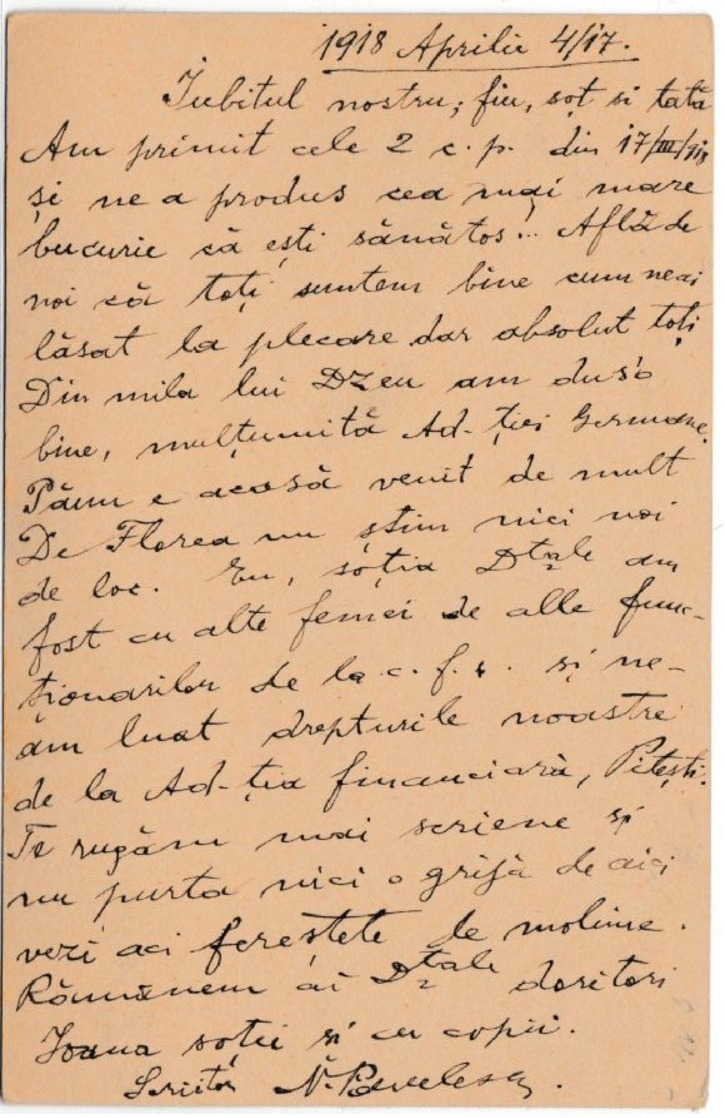 1918 Aprilie 4/17.
Iubitul nostru; fiu, soț si tată
Am primit cele 2 c. p. din 17/III/918
și ne a produs cea mai mare
bucurie că ești sănătos... Află de
noi că toți suntem bine cum neai
lăsat la plecare dar absolut toți
Din mila lui Dzeu am dus'o
bine, mulțumită Ad-ției Germane.
Păun e acasă venit de mult
De Florea nu știm nici noi
de loc. Eu, soția Dtale am
fost cu alte femei de alle func-
ționarilor de la c. f. r. si ne-
am luat drepturile noastre
de la Ad-ția financiară, Pitești.
Te rugăm mai scriene și
nu purta nici o grijă de aici
vezi aci ferește te de molime.
Rămânem ai Dtale doritori
Ioana soție si cu copii.
Scriitor N. Pavelescu.